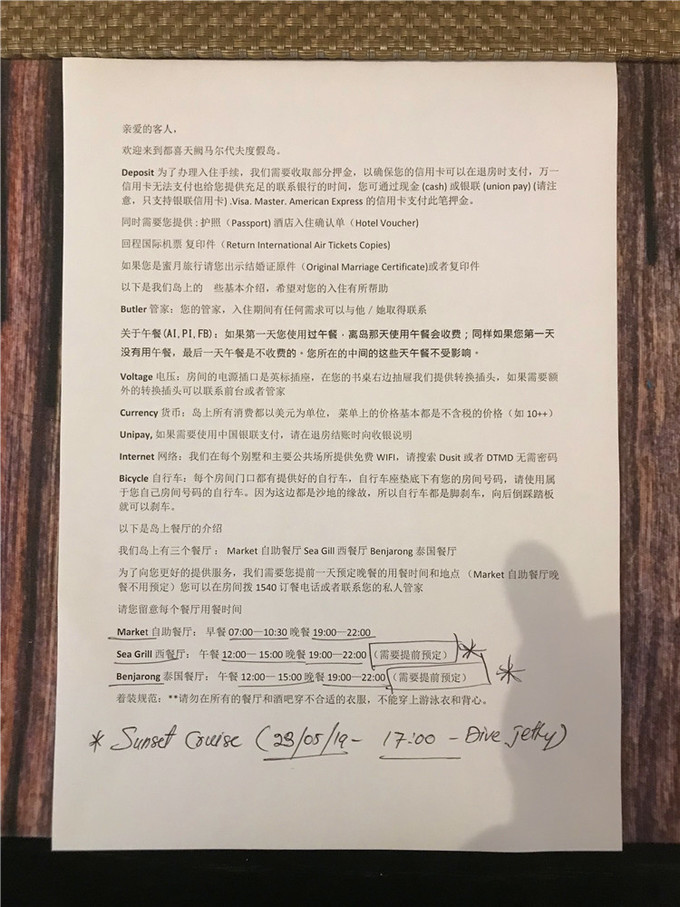 亲爱的客人，
欢迎来到都喜天阙马尔代夫度假岛。
Deposit 为了办理入住手续，我们需要收取部分押金，以确保您的信用卡可以在退房时支付，万一
信用卡无法支付也给您提供充足的联系银行的时间，您可通过现金 (cash) 或银联 (union pay) (请注
意，只支持银联信用卡) .Visa. Master. American Express 的信用卡支付此笔押金。
同时需要您提供 : 护照（Passport) 酒店入住确认单（Hotel Voucher)
回程国际机票 复印件（Return International Air Tickets Copies)
如果您是蜜月旅行请您出示结婚证原件（Original Marriage Certificate)或者复印件
以下是我们岛上的 些基本介绍，希望对您的入住有所帮助
Butler 管家：您的管家，入住期间有任何需求可以与他 / 她取得联系
关于午餐(AI,PI,FB)：如果第一天您使用过午餐，离岛那天使用午餐会收费；同样如果您第一天
没有用午餐，最后一天午餐是不收费的。您所在的中间的这些天午餐不受影响。
Voltage 电压：房间的电源插口是英标插座，在您的书桌右边抽屉我们提供转换插头，如果需要额
外的转换插头可以联系前台或者管家
Currency 货币：岛上所有消费都以美元为单位， 菜单上的价格基本都是不含税的价格（如 10++）
Unipay, 如果需要使用中国银联支付，请在退房结账时向收银说明
Internet 网络：我们在每个别墅和主要公共场所提供免费 WIFI，请搜索 Dusit 或者 DTMD 无需密码
Bicycle 自行车：每个房间门口都有提供好的自行车，自行车座垫底下有您的房间号码，请使用属
于您自己房间号码的自行车。因为这边都是沙地的缘故，所以自行车都是脚刹车，向后倒踩踏板
就可以刹车。
以下是岛上餐厅的介绍
我们岛上有三个餐厅： Market 自助餐厅 Sea Gill 西餐厅 Benjarong 泰国餐厅
为了向您更好的提供服务，我们需要您提前一天预定晚餐的用餐时间和地点 （Market 自助餐厅晚
餐不用预定）您可以在房间拨 1540 订餐电话或者联系您的私人管家
请您留意每个餐厅用餐时间
Market 自助餐厅： 早餐 07:00—10:30 晚餐 19:00—22:00
Sea Grill 西餐厅： 午餐 12:00— 15:00 晚餐 19:00—22:00（需要提前预定） *
Benjarong 泰国餐厅： 午餐 12:00— 15:00 晚餐 19:00—22:00（需要提前预定） *
着装规范：**请勿在所有的餐厅和酒吧穿不合适的衣服，不能穿上游泳衣和背心。
* Sunset Cruise (23/05/19 - 17:00 - Dive Jetty)